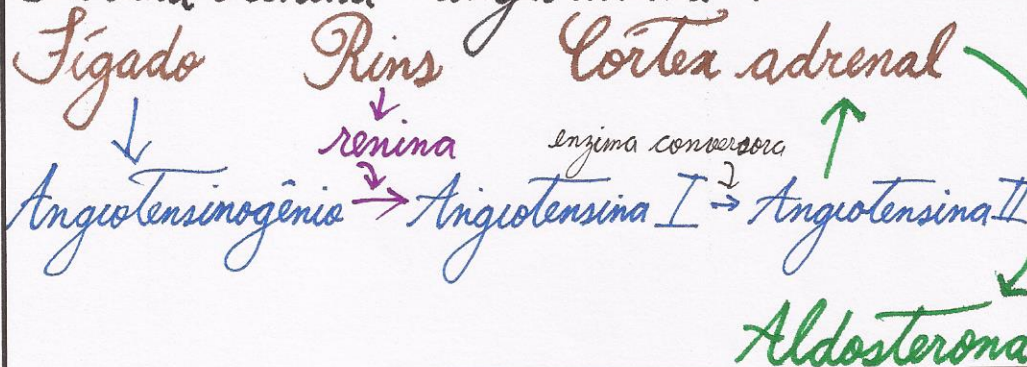 Fígado Rins Córtex adrenal
renina enzima conversora
Angiotensinogênio → Angiotensina I → Angiotensina II
Aldosterona